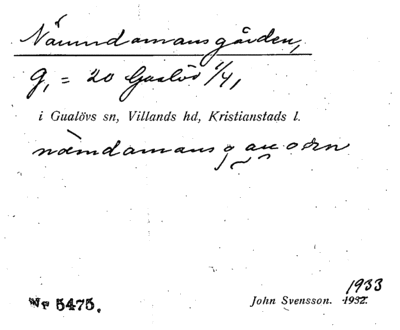 Nämndamansgården,
g, = 20 Gualöv 1/4,
i Gualövs sn, Villands hd, Kristianstads l.
1933
Nr 5475.
John Svensson. 1932.